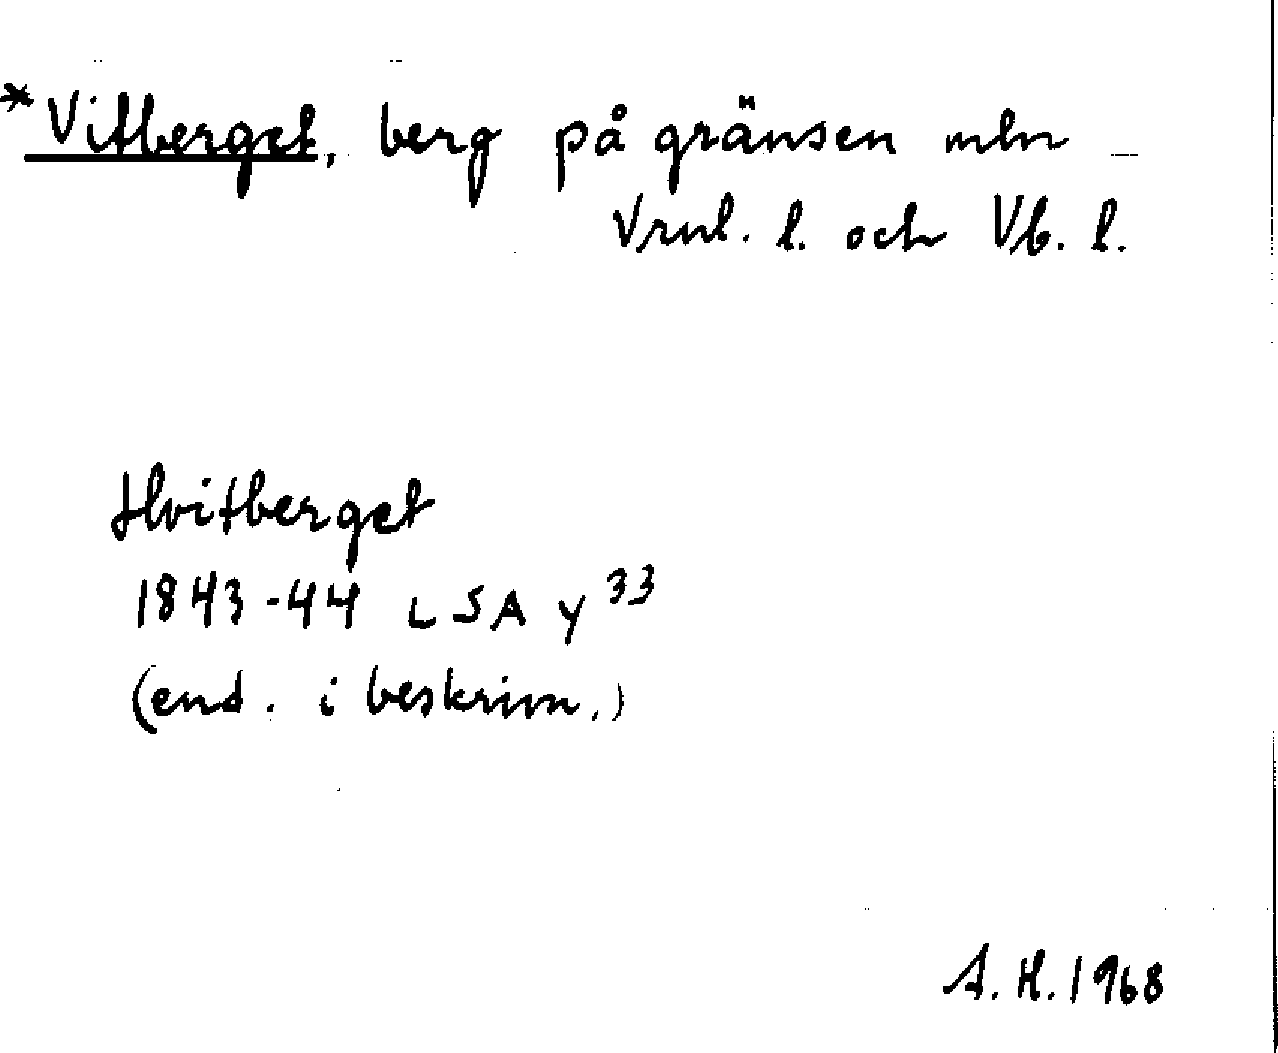 *Vitberget, berg på gränsen mln
Vrml. l. och Vb. l.
Hvitberget
1843-44 LSA Y 33
(end. i beskrivn.)
A. H. 1968